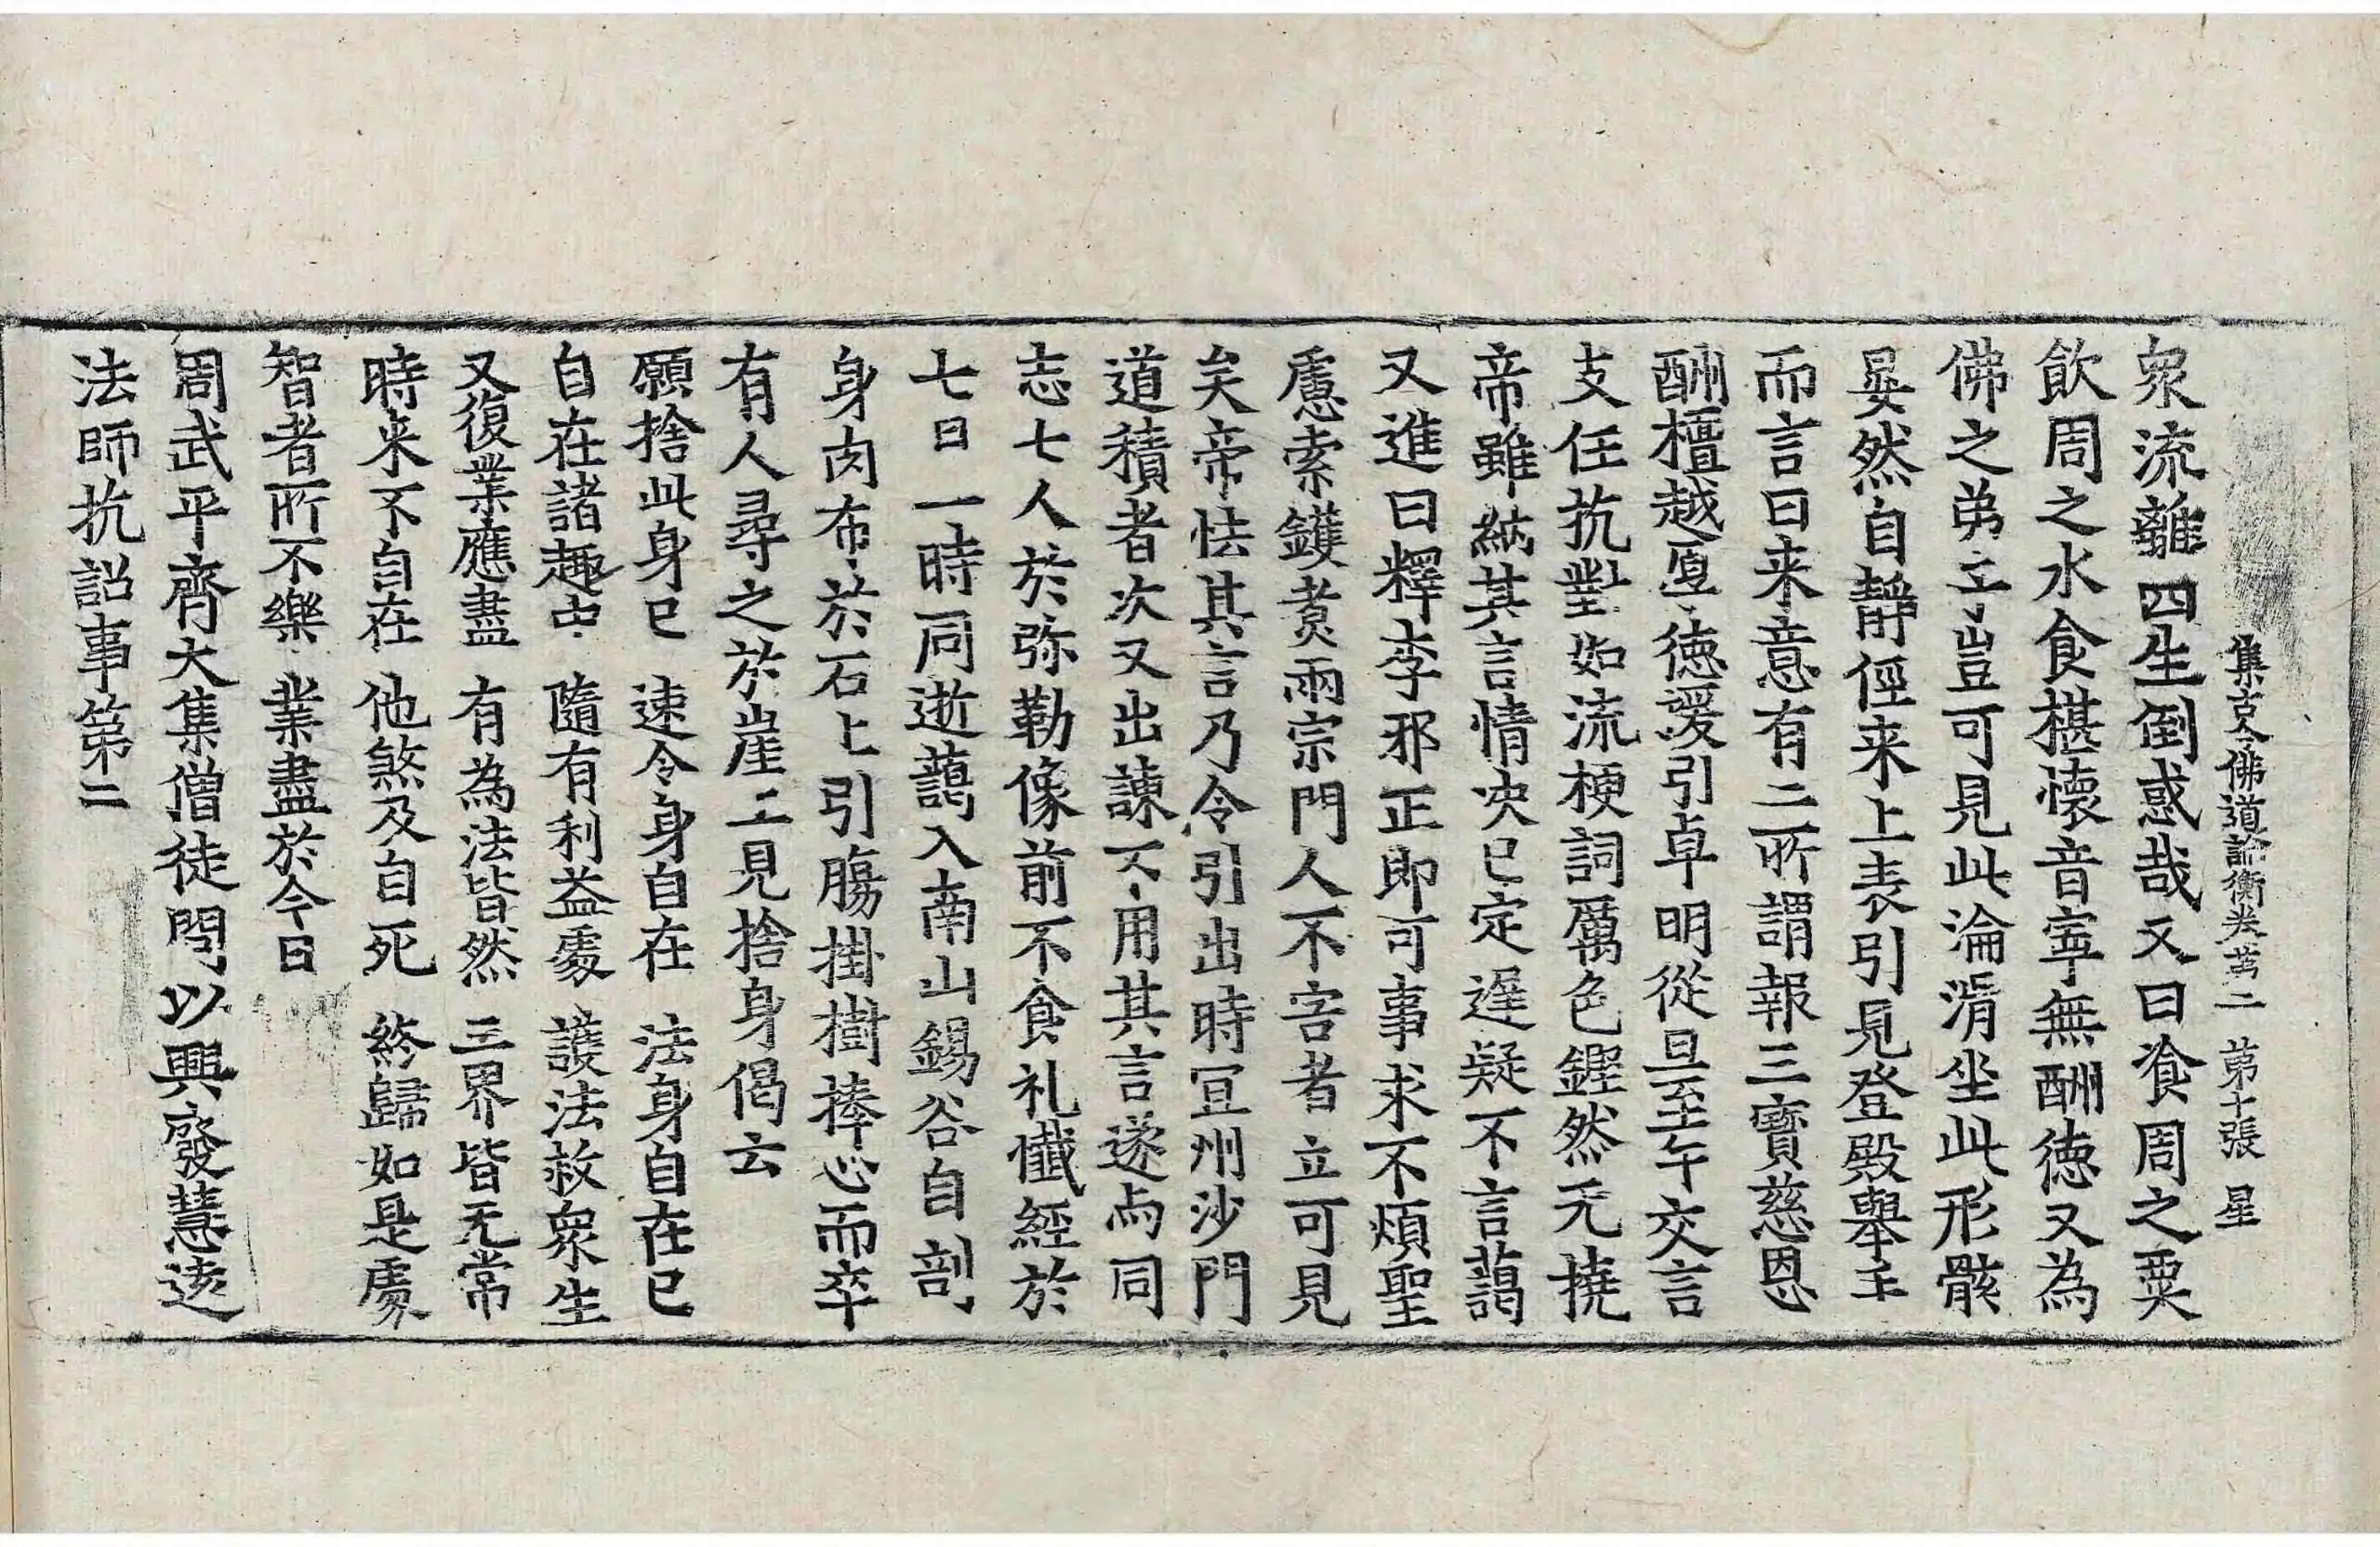 集古今佛道論衡卷苐二　苐十張　星
衆流離四生倒惑哉又曰飡周之粟
飲周之水食椹懷音寧無酬徳又為
佛之弟子豈可見此淪湑坐此形骸
晏然自靜徑来上表引見登殿舉手
而言曰来意有二所謂報三寶慈恩
酬檀越厚徳援引卓明從旦至午交言
支任抗對如流梗詞厲色鏗然无撓
帝雖納其言情決已定遲疑不言藹
又進曰釋李邪正即可事求不煩聖
慮索鑊煑兩宗門人不害者立可見
矣帝怯其言乃令引出時冝州沙門
道積者次又出諫不用其言遂与同
志七人於弥勒像前不食礼懺經於
七日一時同逝藹入南山錫谷自剖
身肉布於石上引腸掛樹捧心而卒
有人尋之於崖上見捨身偈云
願捨此身已　速令身自在　法身自在已
自在諸趣中　隨有利益處　護法救衆生
又復業應盡　有為法皆然　三界皆无常
時来不自在　他煞及自死　終歸如是處
智者所不樂　業盡於今日
周武平齊大集僧徒問以興廢慧遠
法師抗詔事第二